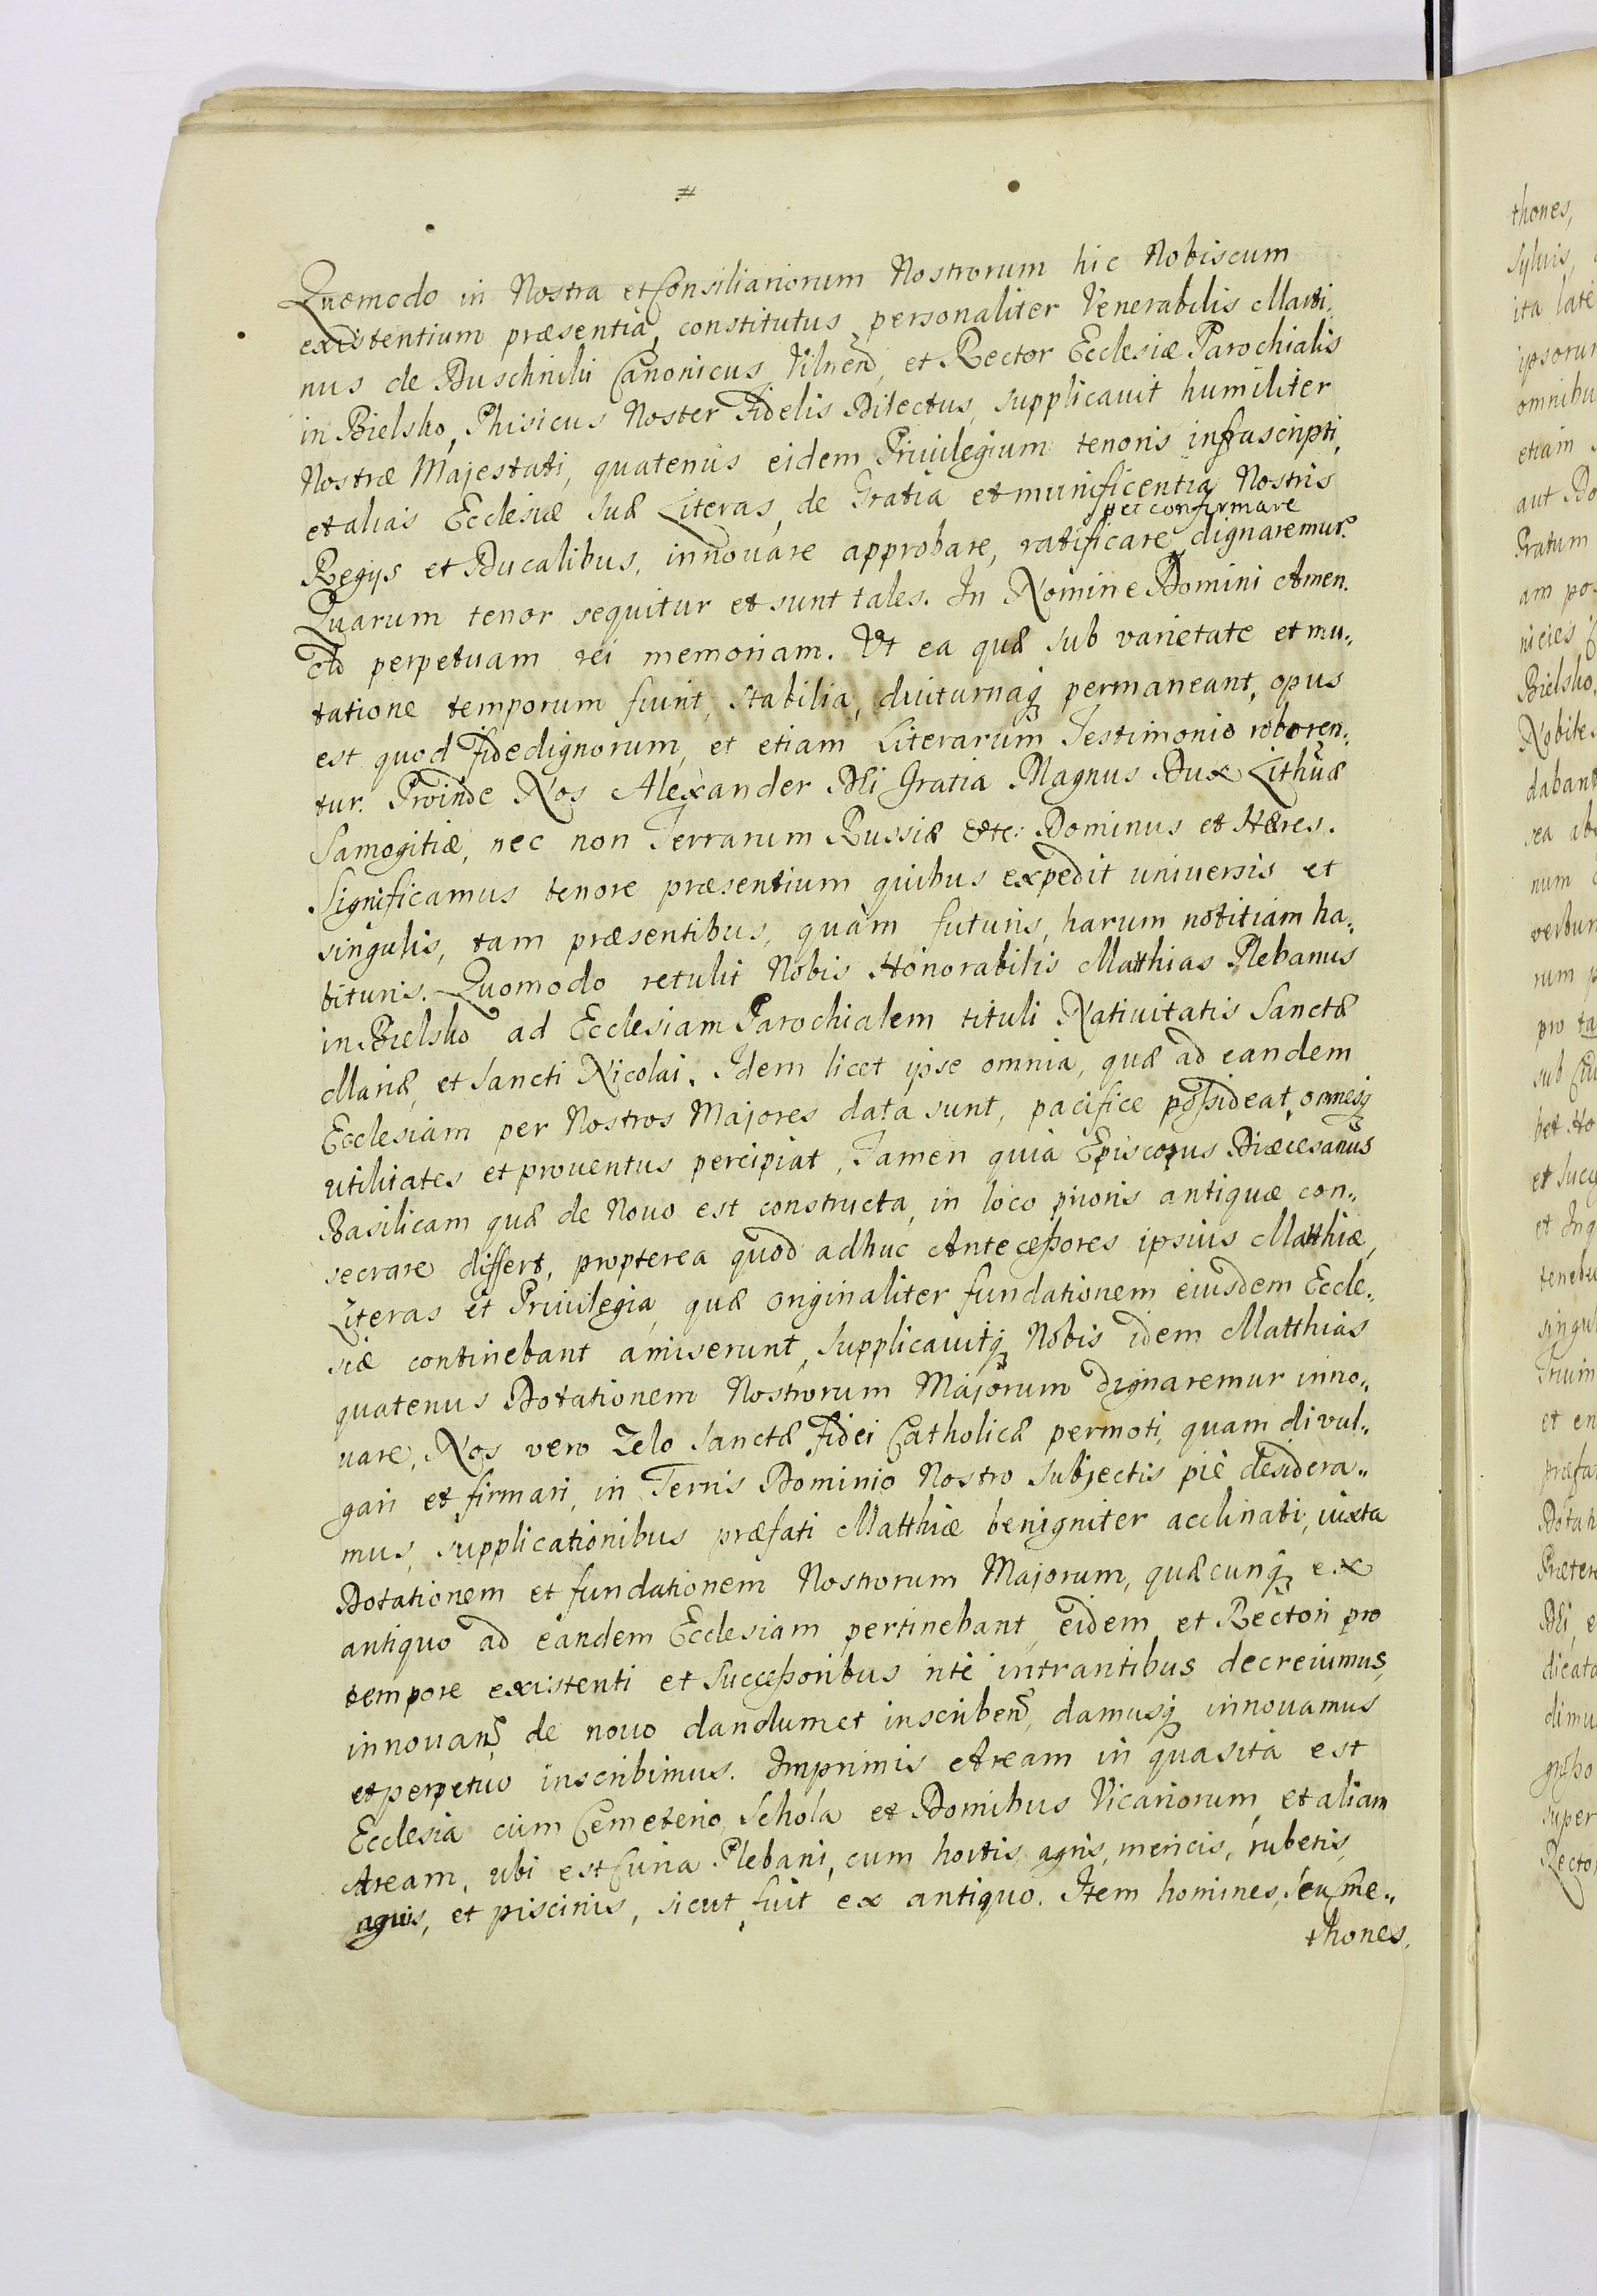 #
Quæmodo in Nostra et Consiliariorum Nostrorum hic Nobiscum
existentium præsentia, constitutus personaliter Venerabilis Marti„
nus de Duschniki Canonicus Vilnen, et Rector Ecclesiæ Parochialis
in Bielsko, Phisicus Noster Fidelis Dilectus, supplicavit humiliter
Nostræ Majestati, quatenus eidem Priuilegium tenoris infrascripti,
et alias Ecclesiæ suæ Literas, de Gratia et munificentia Nostris
et confirmare
Regijs et Ducalibus, innouare approbare, ratificare dignaremur.
Quarum tenor sequitur et sunt tales. In Nomine Domini Amen.
Ad perpetuam rei memoriam. Vt ea quæ sub varietate et mu„
tatione temporum fiunt, stabilia, diuturnaq permaneant, opus
est quod fide dignorum, et etiam Literarum Testimonio roboren„
tur. Proinde Nos Alexander Dei Gratia Magnus Dux Lithuæ
Samogitiæ, nec non Terrarum Russiæ etc: Dominus et Hæres.
Significamus tenore præsentium quibus expedit uniuersis et
singulis, tam præsentibus, quàm futuris, harum notitiam ha„
bituris. Quomodo retulit Nobis Honorabilis Matthias Plebanus
in Bielsko ad Ecclesiam Parochialem tituli Natiuitatis Sanctæ
Mariæ, et Sancti Nicolai. Idem licet ipse omnia, quæ ad eandem
Ecclesiam per Nostros Majores data sunt, pacifice possideat, omnesq
utilitates et prouentus percipiat, Tamen quia Episcopus Diæcesanus
Basilicam quæ de Nouo est constructa, in loco prioris antiquæ con„
secrare differt, propterea quod adhuc Antecessores ipsius Matthiæ,
Literas et Priuilegia, quæ originaliter fundationem eiusdem Eccle„
siæ continebant amiserunt, supplicauitq Nobis idem Matthias
quatenus Dotationem Nostrorum Majorum dignaremur inno„
uare, Nos vero Zelo Sanctæ Fidei Catholicæ permoti, quam divul„
gari et firmari, in Terris Dominio Nostro Subjectis piè desidera„
mus, supplicationibus præfati Matthiæ benigniter acclinati, iuxta
Dotationem et fundationem Nostrorum Majorum, quæcunq ex
antiquo ad eandem Ecclesiam pertinebant, eidem et Rectori pro
tempore existenti et Successoribus ritè intrantibus decreiumus,
innouan de nouo dandum et inscriben, damusq innouamus
et perpetuo inscribimus. Imprimis Aream in qua sita est
Ecclesia cum Cemeterio, Schola et Domibus Vicariorum, et aliam
Aream, ubi est Curia Plebani, cum hortis, agris, mericis, rubetis,
aquis, et piscinis, sicut fuit ex antiquo. Item homines, seu Cme„
thones,
thones,
Syluis,
ita late
ipsorum
omnibu
etiam
aut Do
Pratum
am pos
nicies
Bielsko,
Nobile
dabant
rea ab
num
verbum
rum p
pro ta
sub
bet Ho
et Succ
et Inq
tenebu
singul
Trium
et en
præfa
Dotati
Præter
Dei, e
dicata
dimu
super
Recto